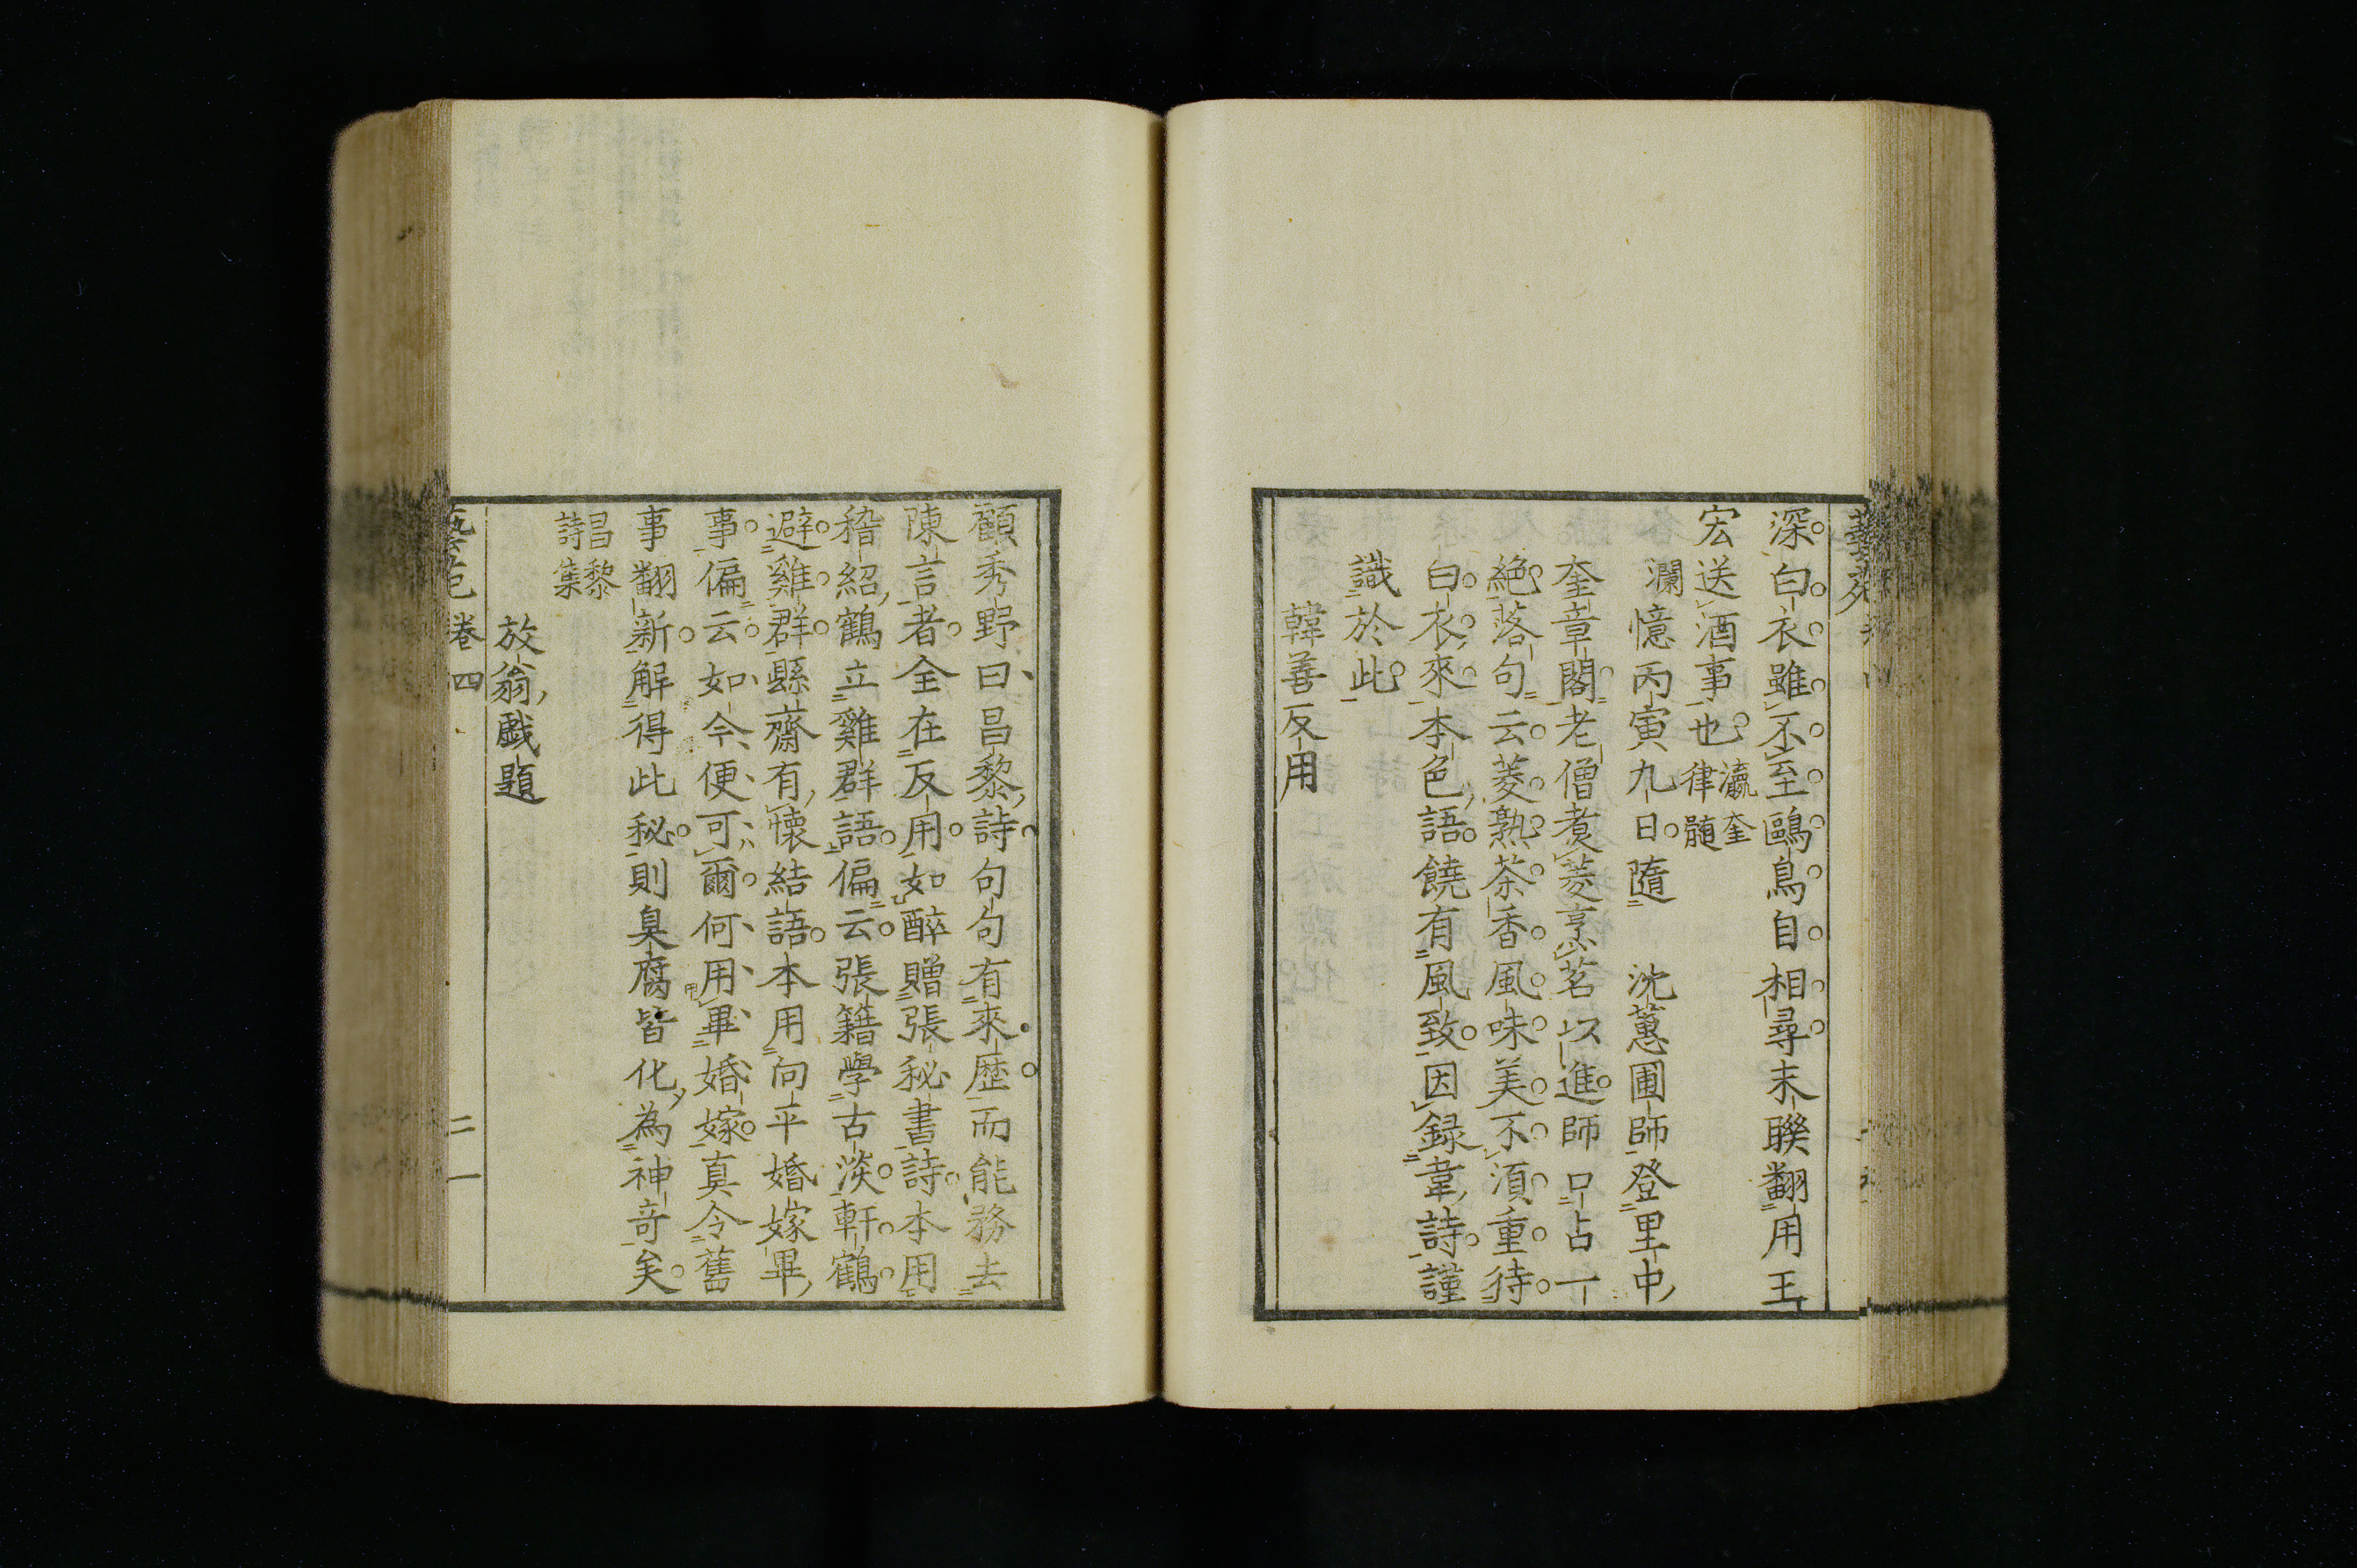 深白衣雖不至鷗鳥自相尋末聯翻用王
宏送酒事也瀛奎律髓
瀾憶丙寅九日隨 沈蕙圃師登里中
奎章閣老僧煮菱烹茗以進師口占一
絶落句云菱熟茶香風味美不湏重待
白衣來本色語饒有風致因録韋詩謹
識於此
韓善反用
顧秀野曰昌黎詩句句有來歴而能務去
陳言者全在反用如醉贈張秘書詩本用
稽紹鶴立雞群語偏云張籍學古淡軒鶴
避雞群縣齋有懷結語本用向平婚嫁畢
事偏云如今便可爾何用畢婚嫁真令舊
事翻新解得此秘則臭腐皆化為神竒矣
昌黎詩集
放翁戲題
卷四
二一